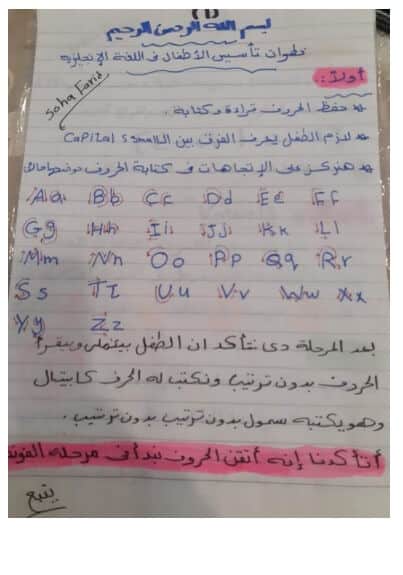 (1)
بسم الله الرحمن الرحيم
خطوات تأسيس الأطفال فى اللغة الإنجليزية
Soha Farid
أولاً:
* حفظ الحروف قراءة وكتابة.
* لازم الطفل يعرف الفرق بين الـ Capital و small
* هنركز على الإتجاهات فى كتابة الحروف
Aa Bb Cc Dd Ee Ff
Gg Hh Ii Jj Kk Ll
Mm Nn Oo Pp Qq Rr
Ss Tt Uu Vv Ww Xx
Yy Zz
بعد المرحلة دى نتأكد ان الطفل بيتملى ويقرأ
الحروف بدون ترتيب ونكتب له الحرف كابيتال
وهو يكتبه سمول بدون ترتيب بدون ترتيب.
أتأكدنا إنه أتقن الحروف نبدأ فى مرحلة
يتبع